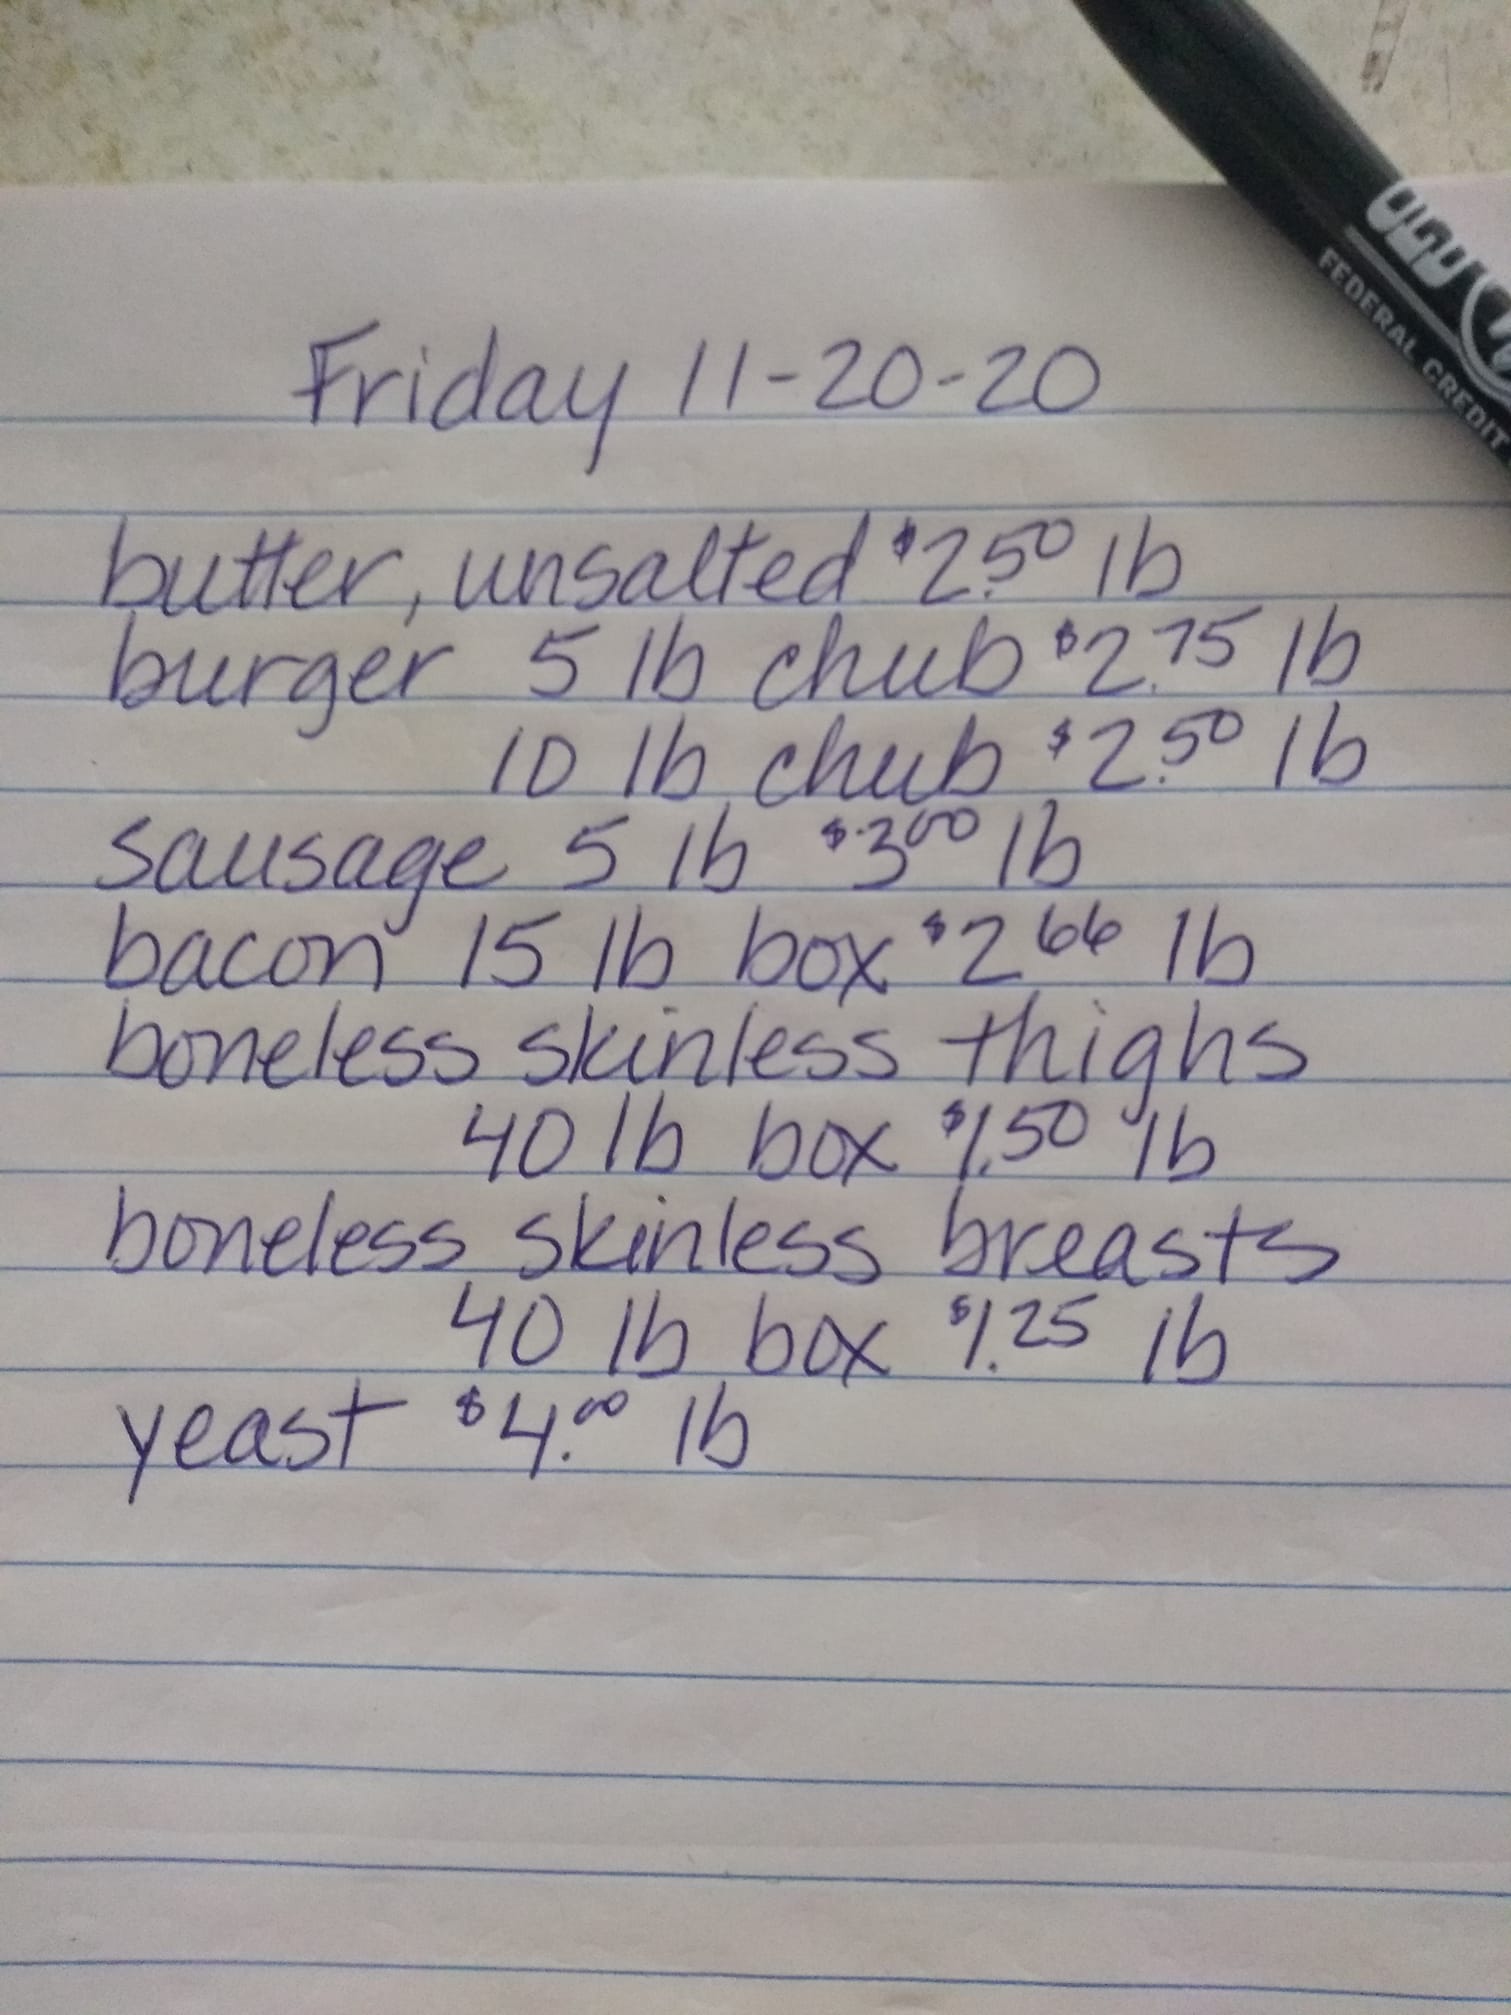 Friday 11-20-20
butter, unsalted $2.50 lb
burger 5 lb chub $2.75 lb
10 lb chub $2.50 lb
sausage 5 lb $3.00 lb
bacon 15 lb box $2.66 lb
boneless skinless thighs
40 lb box $1.50 lb
boneless skinless breasts
40 lb box $1.25 lb
yeast $4.00 lb
FEDERAL CREDIT